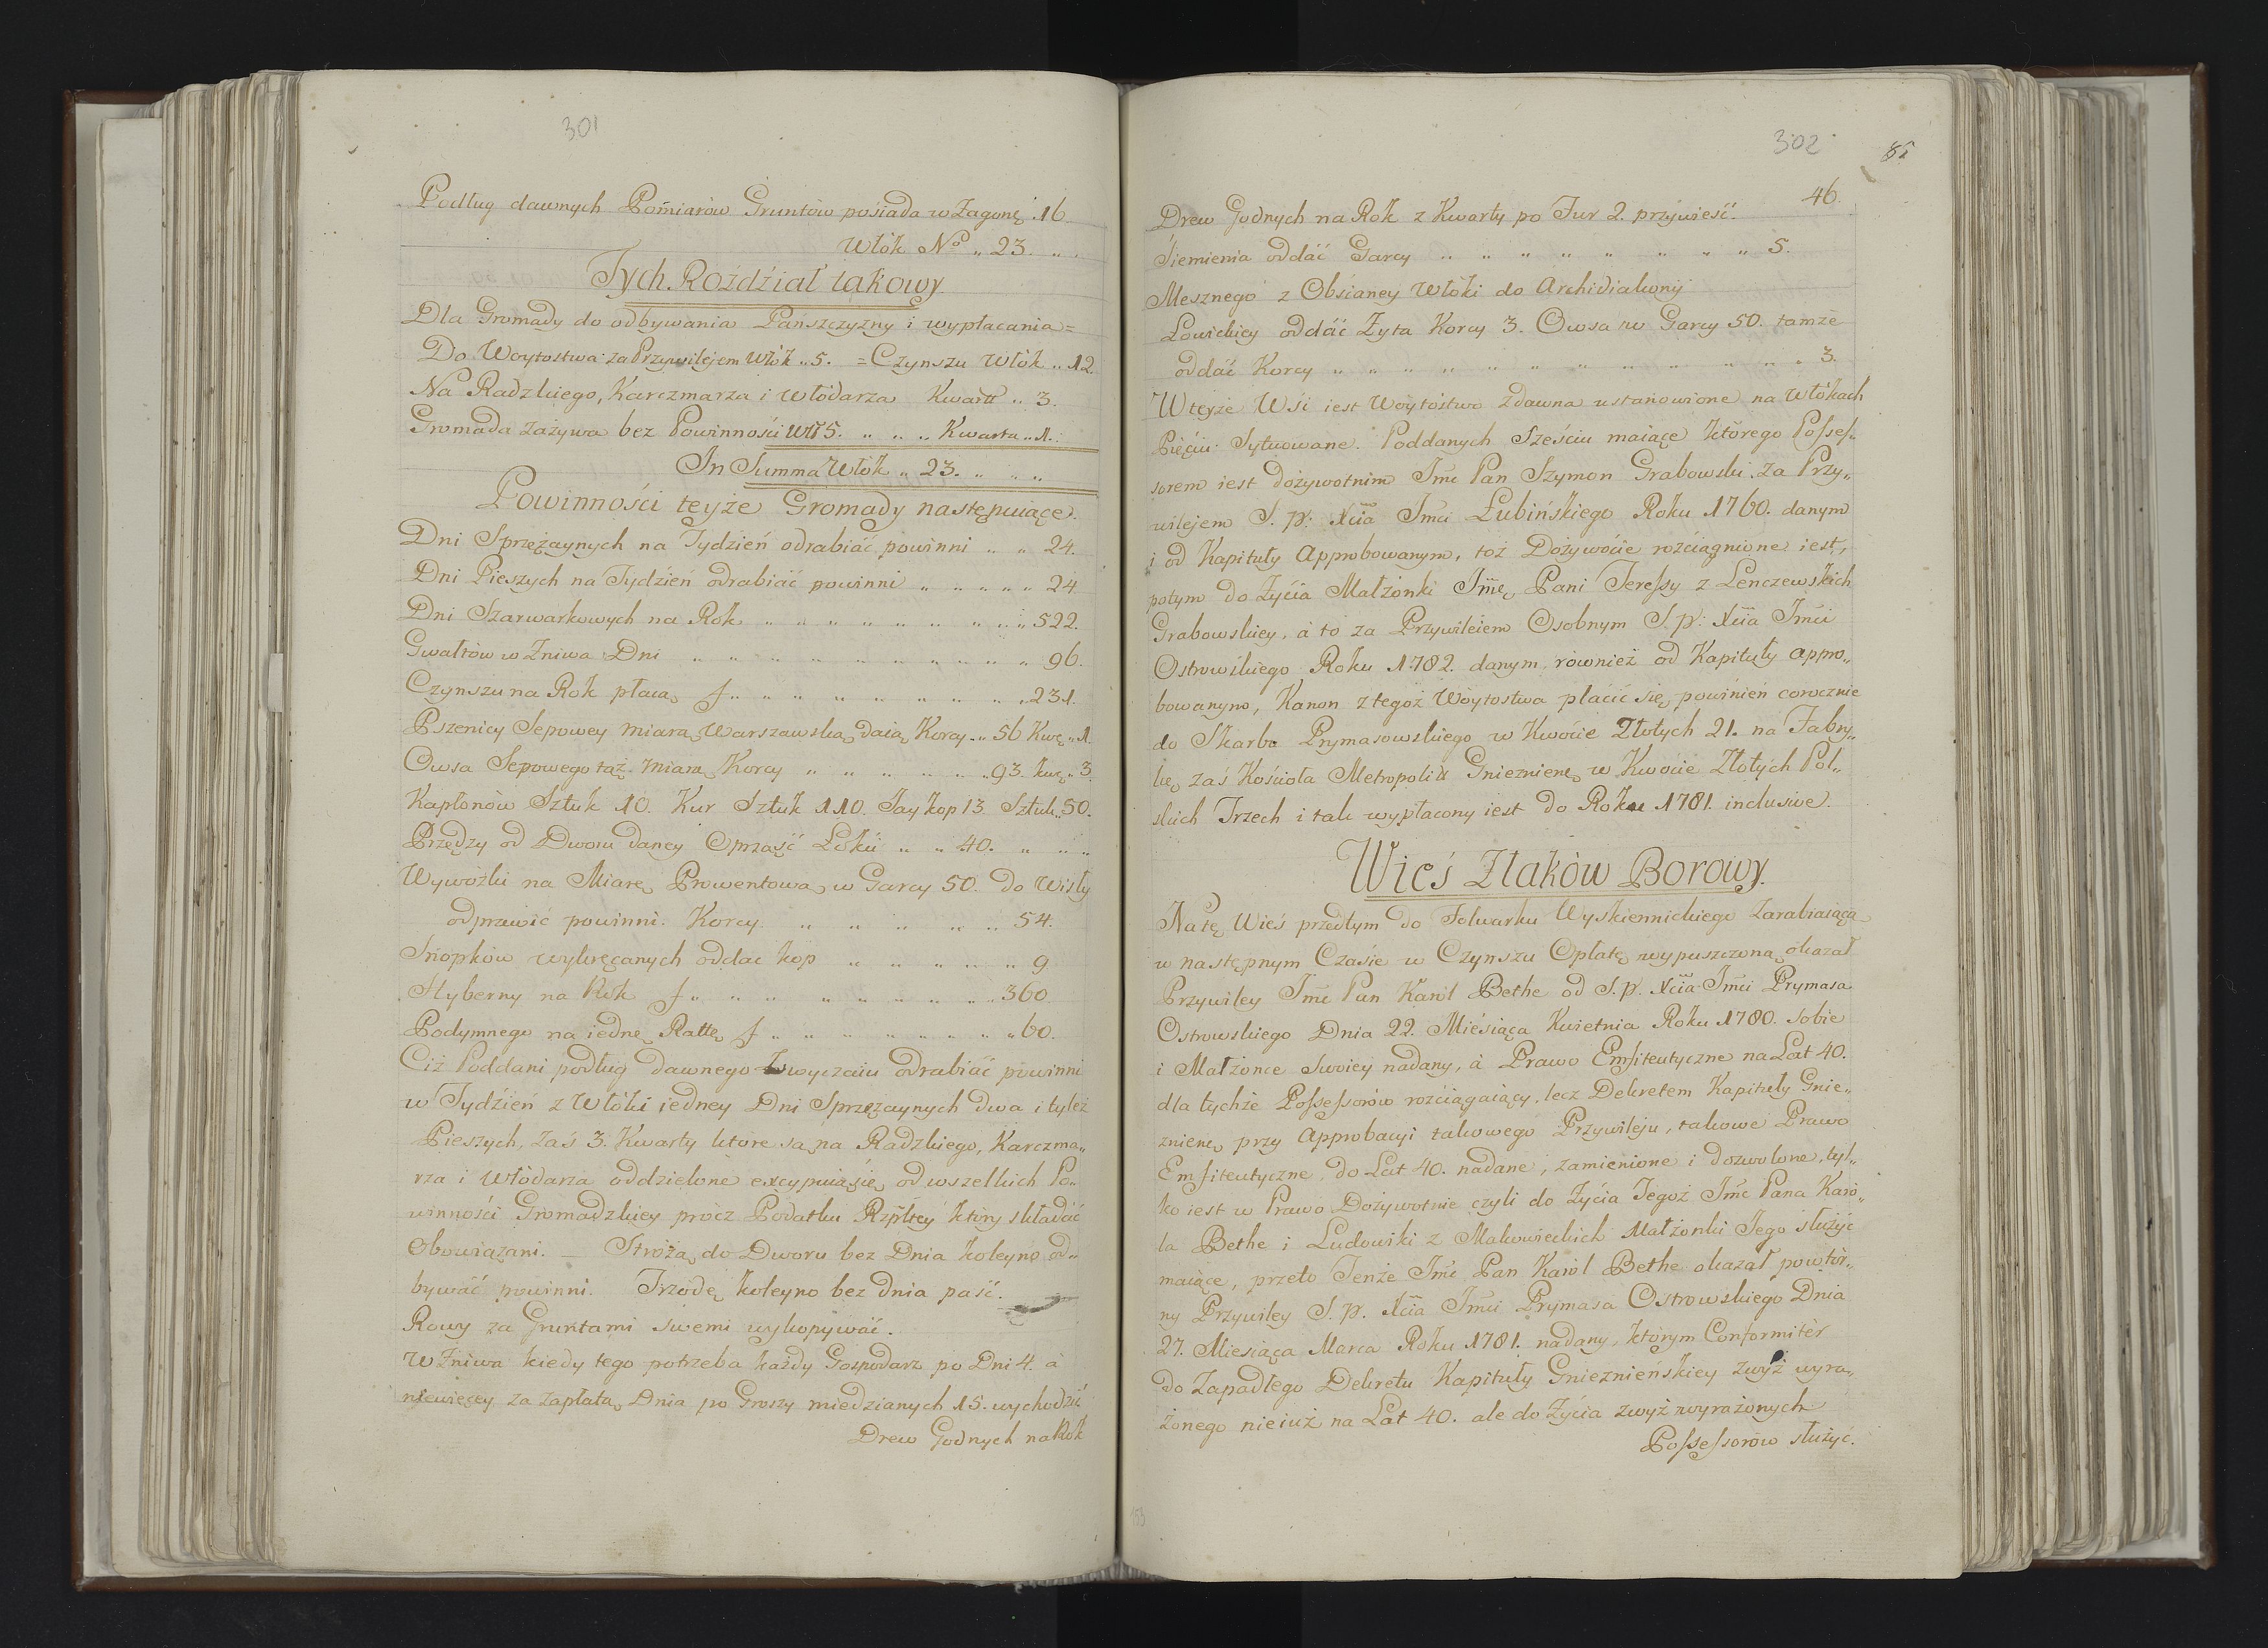 301
Podług dawnych Pomiarów Gruntów posiada w Zagonę 16
Włók No „ 23. „ „
Tych Roździał takowy
Dla Gromady do odbywania Pańszczyzny i wypłacania =
Do Woytostwa za Przywilejem Włók „ 5. = Czynszu Włók „ 12.
Na Radzkiego, Karczmarza i Włódarza Kwart „ 3.
Gromada zażywa bez Powinności Wł 5. „ „ „ Kwarta „ 1.
In Summa Włók „ 23. „ „ „
Powinności teyże Gromady następuiące.
Dni Sprzężaynych na Tydzień odrabiać powinni „ „ 24.
Dni Pieszych na Tydzień odrabiać powinni „ „ „ „ „ 24
Dni Szarwarkowych na Rok „ „ „ „ „ „ „ „ „ 522.
Gwałtów w Żniwa Dni „ „ „ „ „ „ „ „ „ „ „ 96.
Czynszu na Rok płacą f „ „ „ „ „ „ „ „ „ 231.
Pszenicy Sepowey miarą Warszawską daią Korcy „ 56 Kwę „ 1.
Owsa Sepowego taż Miarą Korcy „ „ „ „ „ „ 93. kwę „ 3
Kapłonów Sztuk 10. Kur Sztuk 110. Jay kop 13 Sztuk „ 50.
Przędzy od Dworu daney Oprząść Łokci „ „ 40. „ „ „
Wywózki na Miarę Prowentową w Garcy 50. do Wisły
odprawić powinni. Korcy „ „ „ „ „ 54.
Snopków wykręcanych oddać kop „ „ „ „ „ 9
Hyberny na Rok f „ „ „ „ „ „ „ „ „ 360
Podymnego na iednę Rattę f „ „ „ „ „ „ „ „ 60.
Ciż Poddani podług dawnego Zwyczaiu odrabiać powinni
w Tydzień z Włóki iedney Dni Sprzężaynych dwa i tyleż
Pieszych, zaś 3. Kwarty które są na Radzkiego, Karczma„
rza i Włódarza oddzielone excypuią się od wszelkich Po„
winności Gromadzkiey prócz Podatku Rzpltey który składać
Obowiązani. _ Stróżą do Dworu bez Dnia koleyno od„
bywać powinni. Trzodę koleyno bez dnia paść.
Rowy za Gruntami swemi wykopywać.
W Żniwa kiedy tego potrzeba każdy Gospodarz po Dni 4. a
niewięcey za zapłatą Dnia po Groszy miedzianych 15. wychodzić
Drew Godnych na Rok
302
46.
Drew Godnych na Rok z Kwarty po Fur 2. przywieść.
Siemienia oddać Garcy „ „ „ „ „ „ „ „ 5.
Mesznego z Obsianey Włóki do Archidiakonij
Łowickiey oddać Żyta Korcy 3. Owsa w Garcy 50. tamże
oddać Korcy „ „ „ „ „ „ „ „ „ „ „ „ 3.
W teyże Wsi iest Woytostwo zdawna ustanowione na Włókach
Pięciu Sytuowane. Poddanych Sześciu maiące którego Posses„
sorem iest dożywotnim Jmć Pan Szymon Grabowski za Przy„
wilejem S. p: Xcia Jmci Łubińskiego Roku 1760. danym
i od Kapituły Approbowanym, toż Dożywócie rozciągnione iest,
potym do Życia Małżonki Jmę Pani Teressy z Lenczewskich
Grabowskiey, a to za Przywileiem Osobnym S. p: Xcia Jmci
Ostrowskiego Roku 1782. danym, również od Kapituły appro„
bowanym, Kanon z tegoż Woytostwa płacić się powinień corocznie
do Skarbu Prymasowskiego w Kwocie Złotych 21. na Fabry„
kę zaś Kościoła Metropolit Gnieznienę w Kwocie Złotych Pol„
skich Trzech i tak wypłacony iest do Roku 1781. inclusive.
Wieś Złaków Borowy.
Na tę Wieś przedtym do Folwarku Wyskiennickiego zarabiaiącą
w następnym Czasie w Czynszu Opłatę wypuszczoną, okazał
Przywiley Jmć Pan Karol Bethe od S. p. Xcia Jmci Prymasa
Ostrowskiego Dnia 22. Miesiąca Kwietnia Roku 1780. sobie
i Małżonce swoiey nadany, a Prawo Emfiteutyczne na Lat 40.
dla tychże Possessorów rozciągaiący, lecz Dekretem Kapituły Gnie„
znienę przy Approbacyi takowego Przywileju, takowe Prawo
Emfiteutyczne, do Lat 40. nadane, zamienione i dozwolone, tyl„
ko iest w Prawo Dożywotnie czyli do Życia Jegoż Jmć Pana Karo„
la Bethe i Ludowiki z Makowieckich Małżonki Jego służyć
maiące, przeto Tenże Jmć Pan Karol Bethe okazał powtór„
ny Przywiley S. p. Xcia Jmci Prymasa Ostrowskiego Dnia
27. Miesiąca Marca Roku 1781. nadany, którym Conformiter
do Zapadłego Dekretu Kapituły Gnieznieńskiey zwyż wyra„
żonego nie iuż na Lat 40. ale do Życia zwyż wyrażonych
Possessorów służyć.